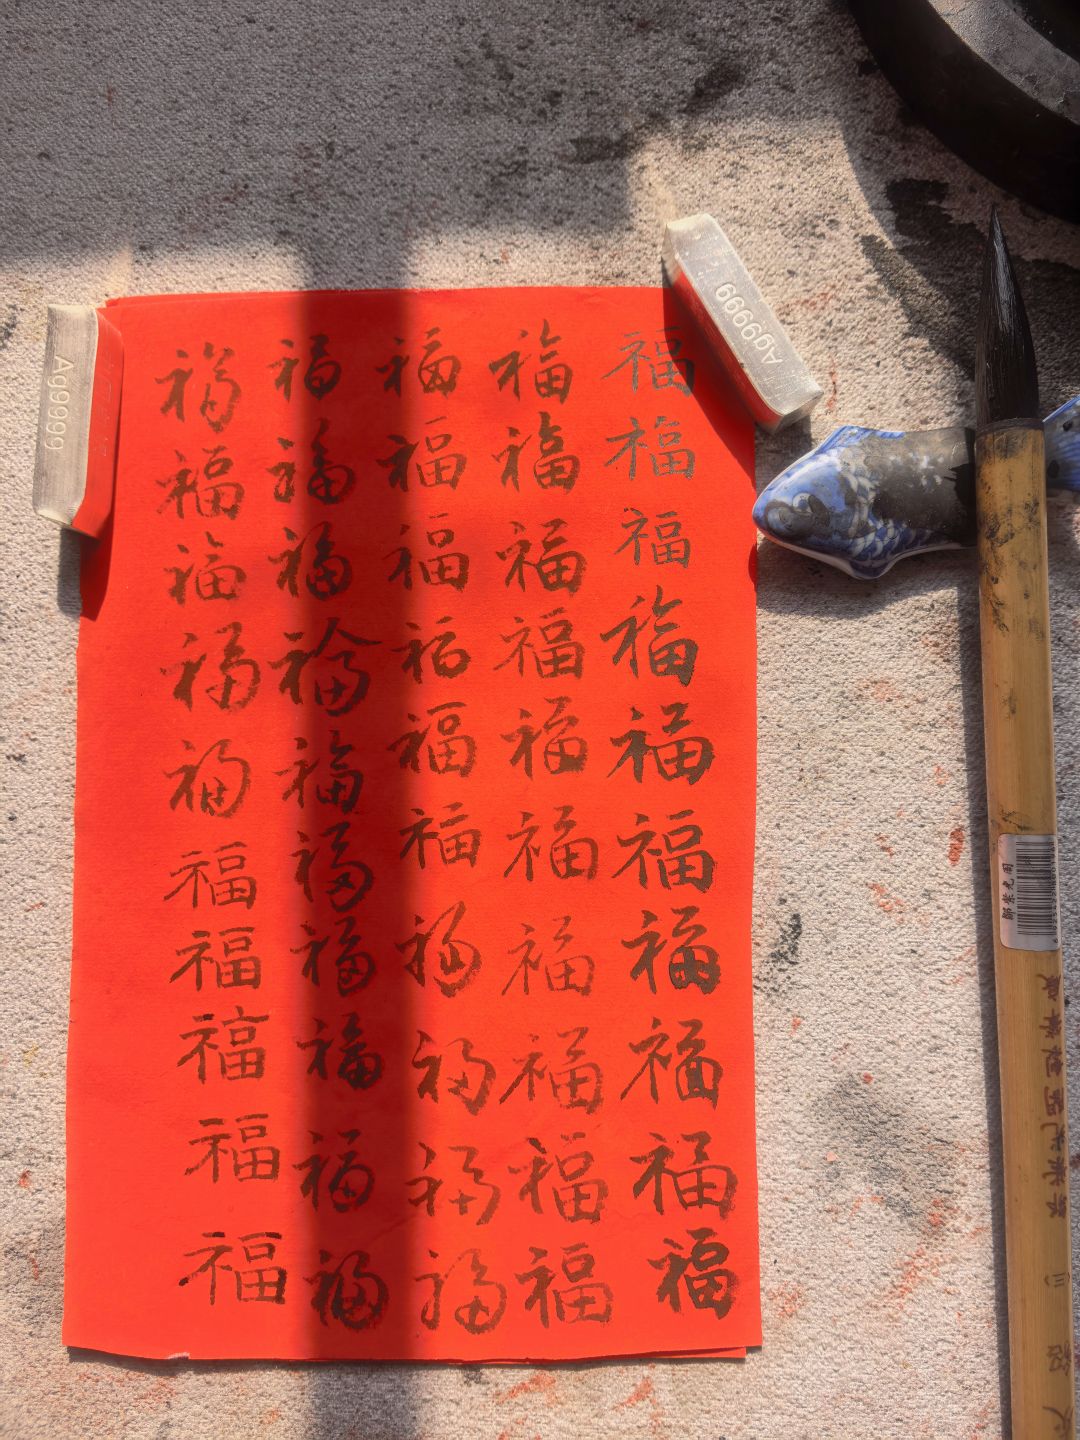 福福福福福福福福福福
福福福福福福福福福福
福福福福福福福福福福
福福福福福福福福福福
福福福福福福福福福福
Ag9999
Ag9999
邹紫光阁